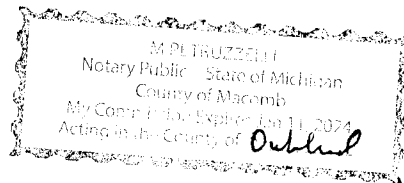 M PETRUZZELLI
Notary Public - State of Michigan
County of Macomb
My Commission Expires Jan 11, 2024
Acting in the County of